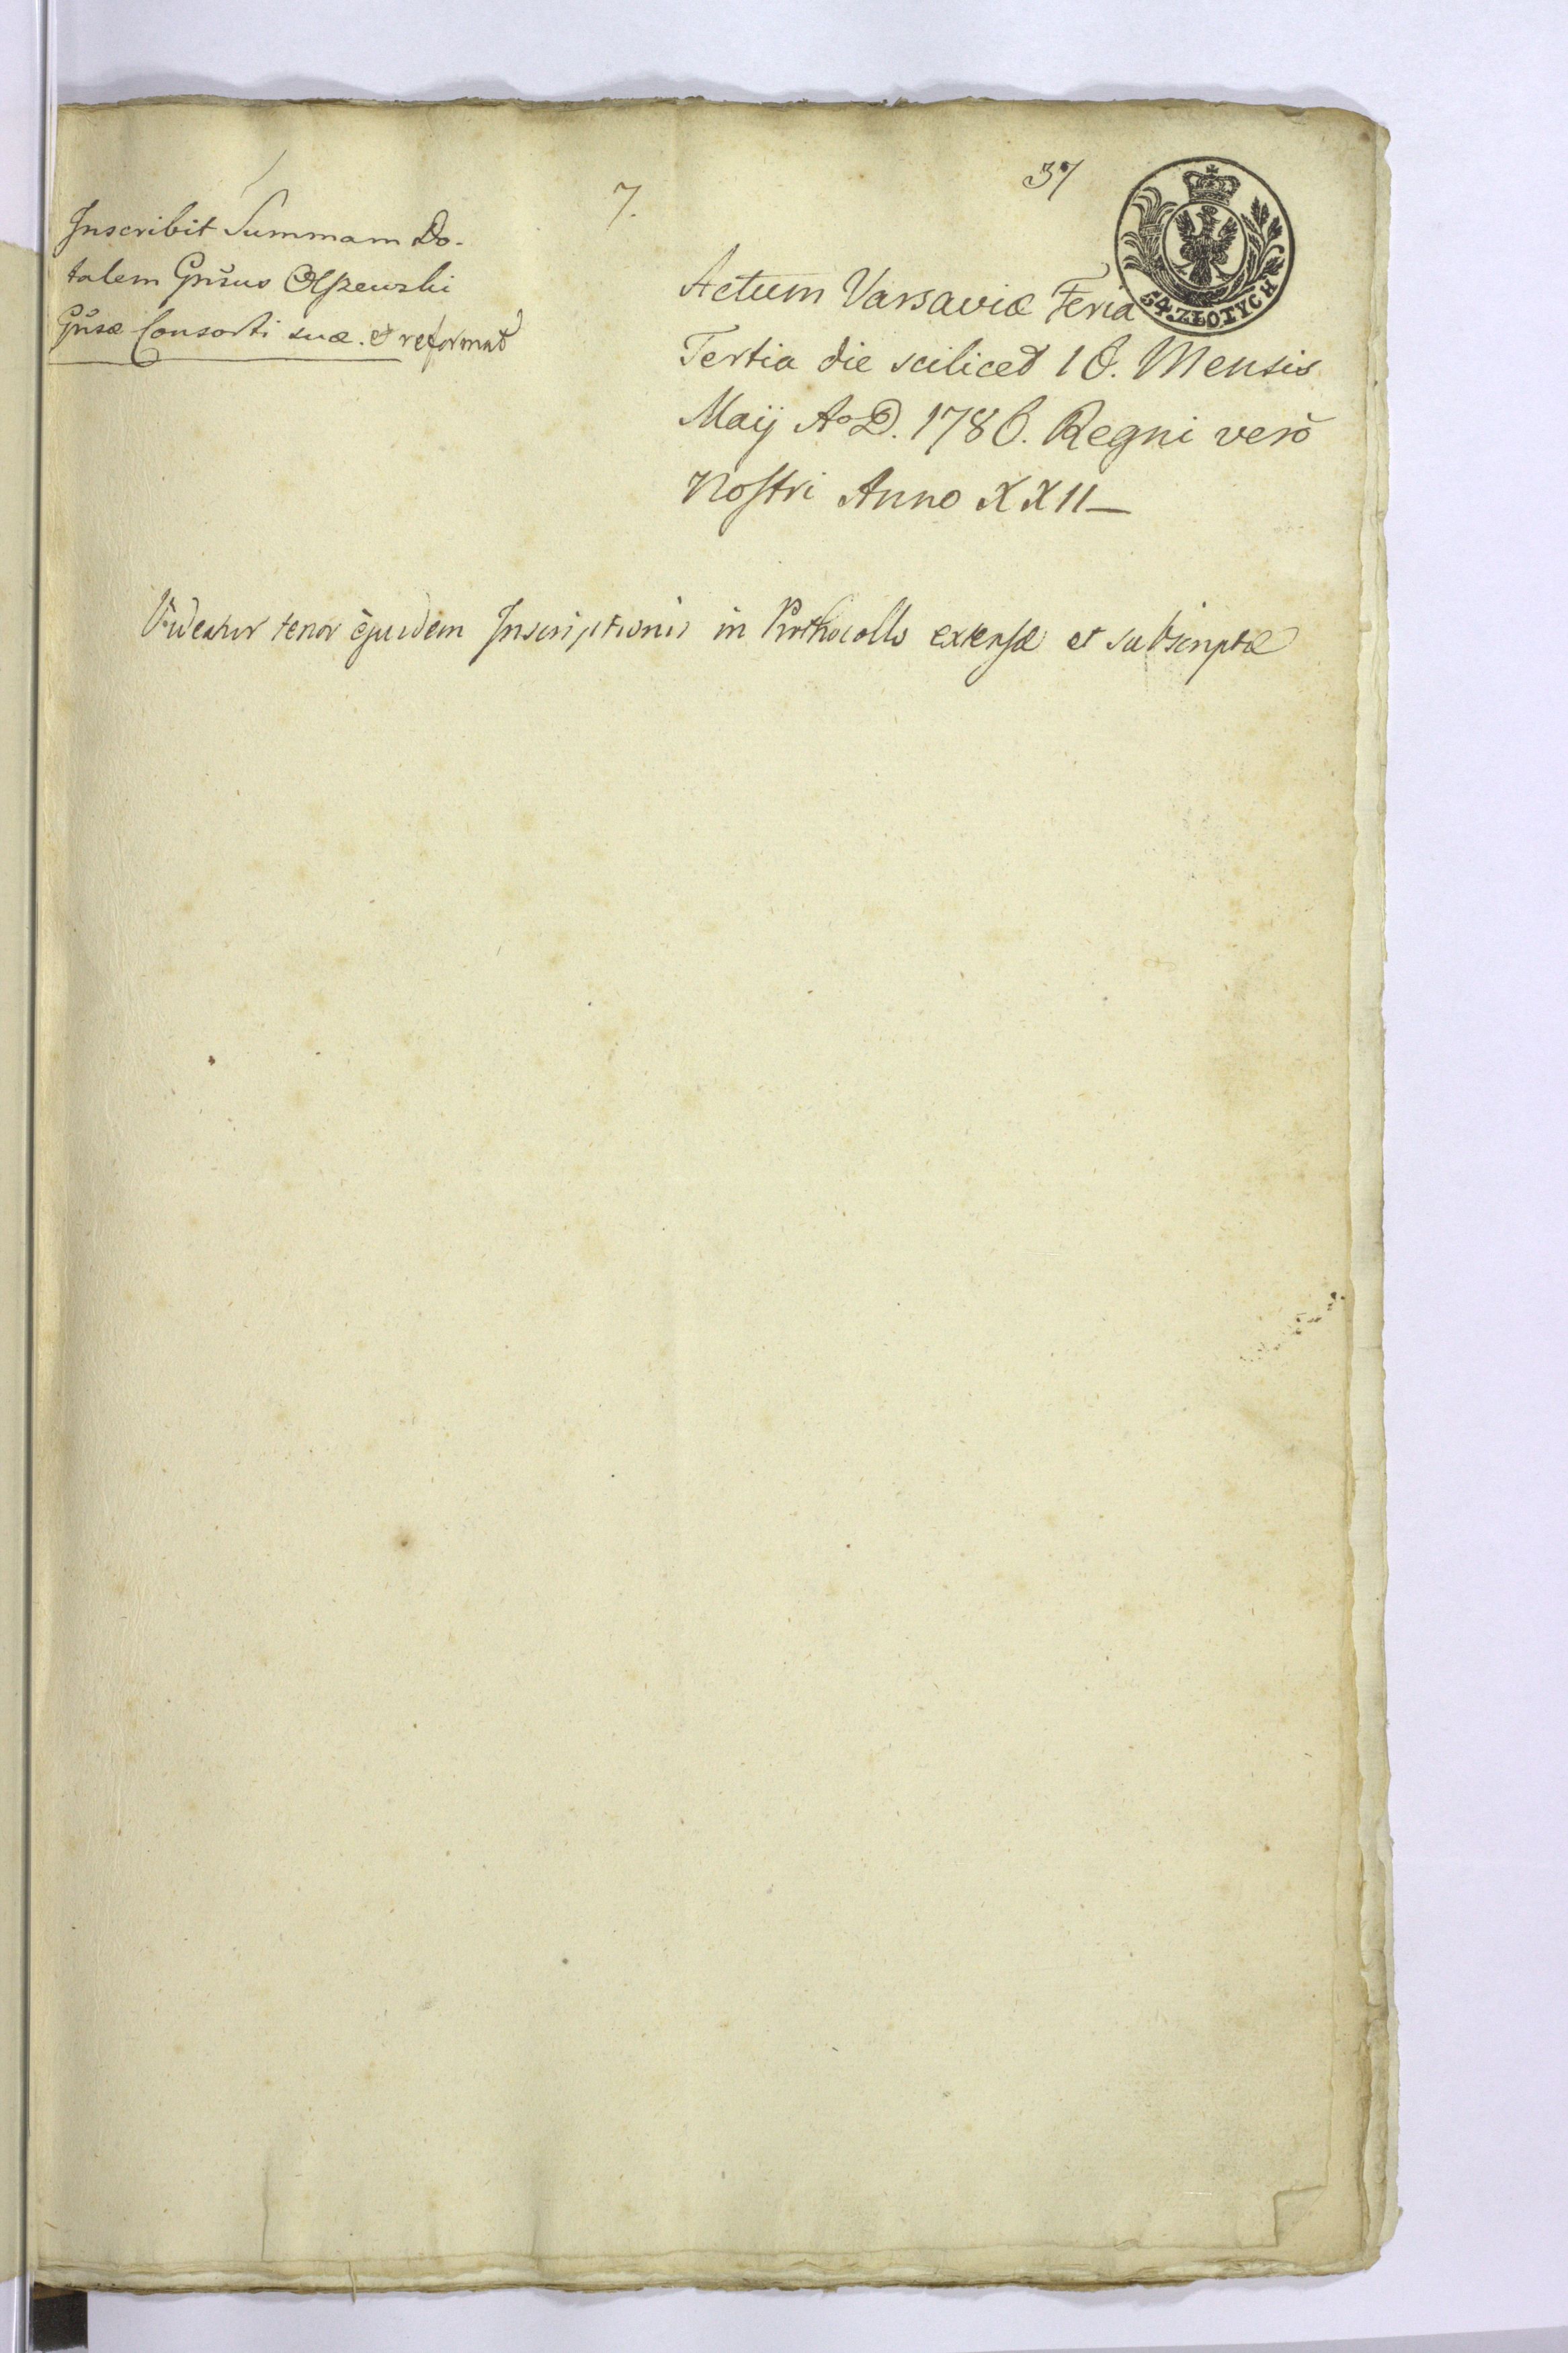 7.
37
Inscribit Summam Do-
talem Gnsus Olszewski
Gnsæ Consorti suæ. et reformat
54. ZŁOTYCH
Actum Varsaviæ Feria
Tertia die scilicet 16. Mensis
Maij Ao D. 1786. Regni verò
Nostri Anno XXII—
Videatur tenor ejusdem Inscriptionis in Prothocollo extensæ et subscriptæ